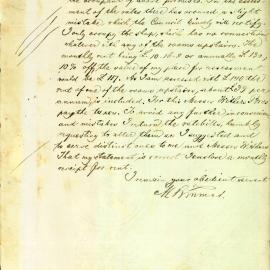 ment of the rates there has occured a slight
mistake, which the Council kindly will rectify
I only occupy the shop, which has no connection
whatever with any of the rooms upstairs. The
monthly rent being £ 10.16.8 or annually £130,
10% off the value of my place for assessment
would be £117. As I am assessed with £140 the
rent of one of the rooms upstairs, about £23 per
annum is included. For this Messrs
pay the taxes. To avoid any further inconvenience
and mistakes I return the ratebills, humbly
requesting to alter them as I suggested and
to serve distinct ones to me and Messrs
That my statement is correct I enclose a monthly
receipt for rent.
I remain your obedient servant